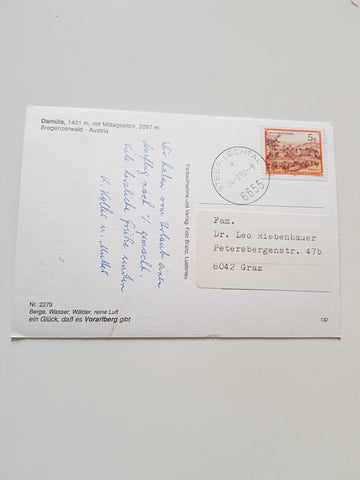 Damüls, 1431 m, mit Mittagspitze, 2097 m
Bregenzerwald - Austria
Wir haben vom Urlaub einen
Ausflug nach
gemacht.
Viele herzliche Grüße senden
u. Mutter
Farbaufnahme und Verlag: Foto Branz, Lustenau
STEEG-LECHTAL
6655
5 S
Fam.
Dr. Leo Riebenbauer
Petersbergenstr. 47b
8042 Graz
Nr. 2279
Berge, Wasser, Wälder, reine Luft
ein Glück, daß es Vorarlberg gibt